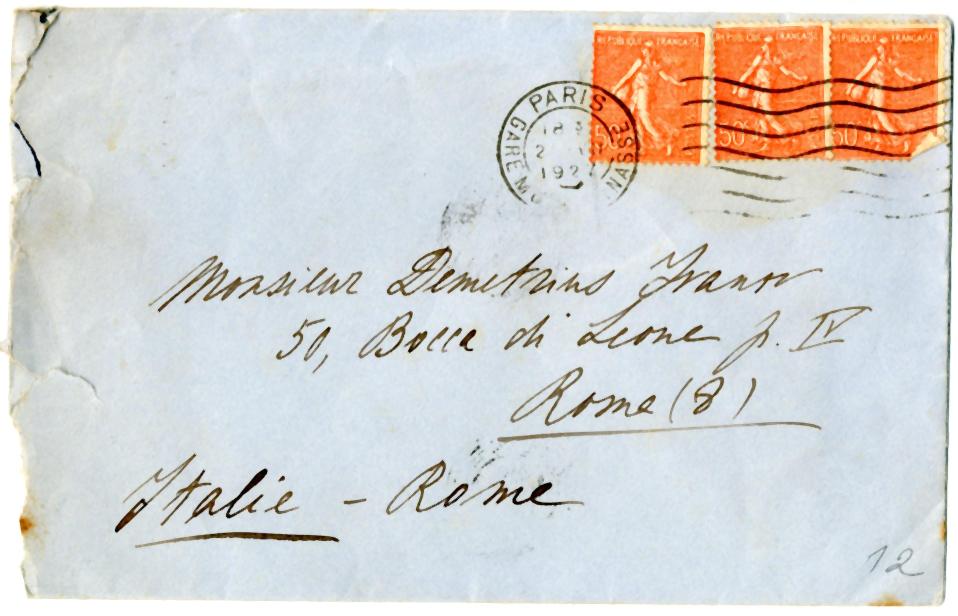 REPUBLIQUE FRANCAISE REPUBLIQUE FRANCAISE REPUBLIQUE FRANCAISE
50c 50c 50c
PARIS
GARE
18
2
192
Monsieur Demetrius Ivanov
50, Bocca di Leone p. IV
Rome (8)
Italie - Rome
12